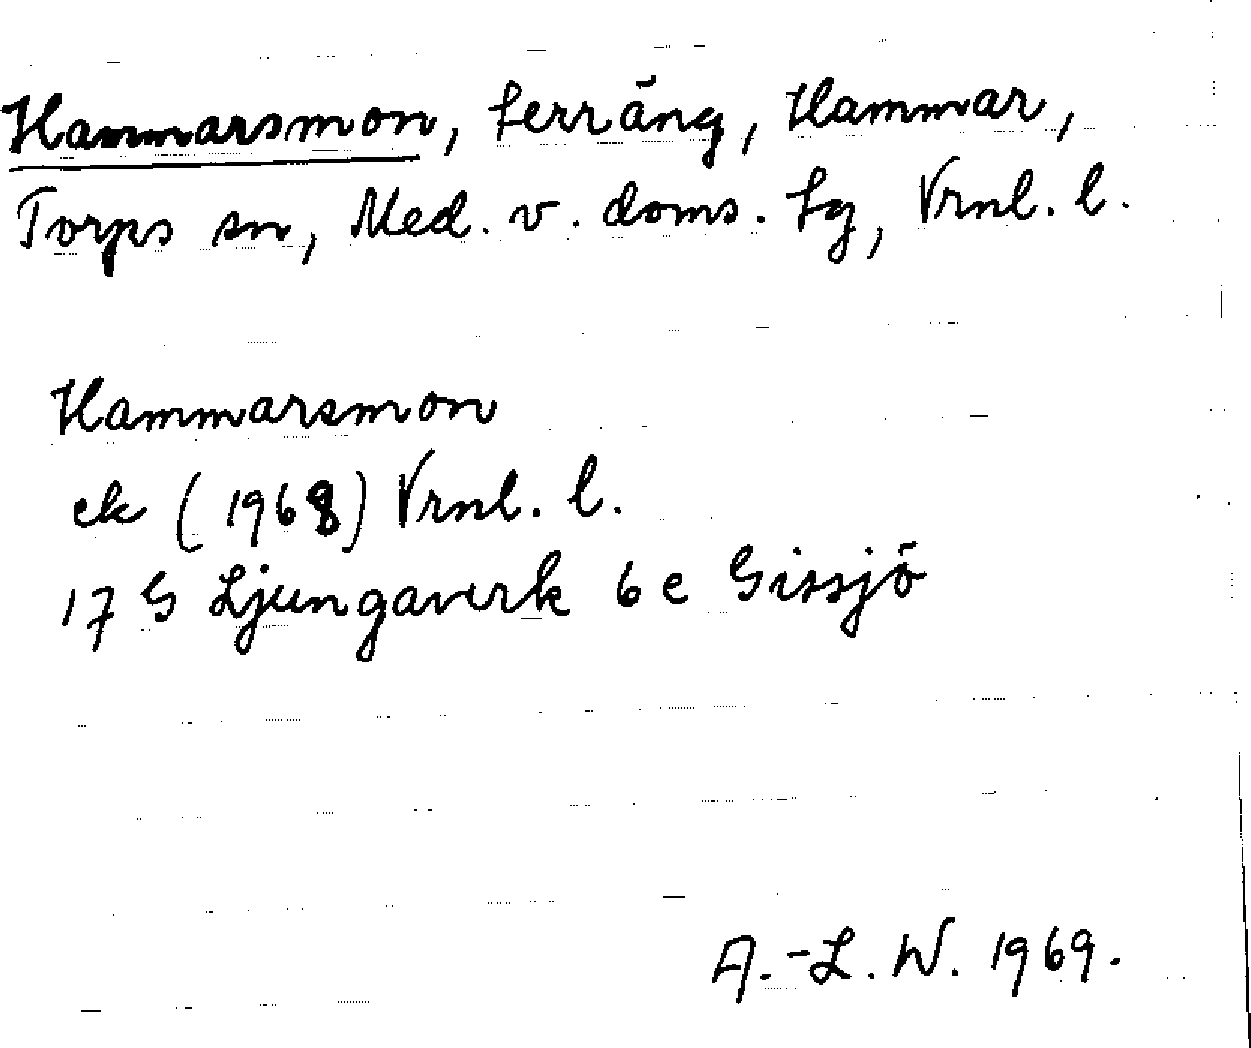 Hammarsmon, terräng, Hammar,
Torps sn, Med. v. doms. tg, Vrnl. l.
Hammarsmon
ek (1968) Vrnl. l.
17 G Ljungaverk 6 e Gissjö
A.-L. W. 1969.